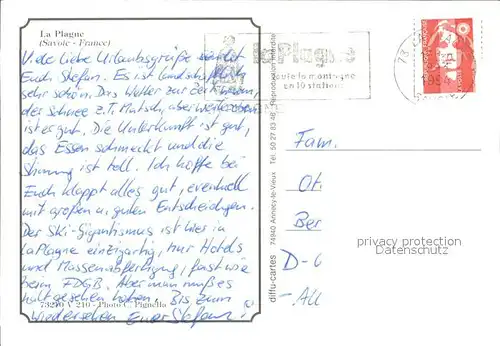 La Plagne
(Savoie - France)
Viele liebe Urlaubsgrüße sendet
Euch Stefan. Es ist landschaftlich
sehr schön. Das Wetter zur Zeit warm,
der Schnee z.T. Matsch, aber weiter oben
ist er gut. Die Unterkunft ist gut,
das Essen schmeckt und die
Stimmung ist toll. Ich hoffe bei
Euch klappt alles gut, eventuell
mit großen u. guten Entscheidungen.
Der Ski-Gigantismus ist hier in
La Plagne einzigartig, nur Hotels
und Massenabfertigung, fast wie
beim FDGB. Aber man muß es
halt gesehen haben. Bis zum
Wiedersehen Euer Stefan!
73210 V 210 - Photo C. Pignella
diffu-cartes 74940 Annecy-le-Vieux Tel. 50 27 83 46 Reproduction interdite
La Plagne
toute la montagne
en 10 stations
73
Fam.
Ot
Ber
D-6
- All
privacy protection
Datenschutz